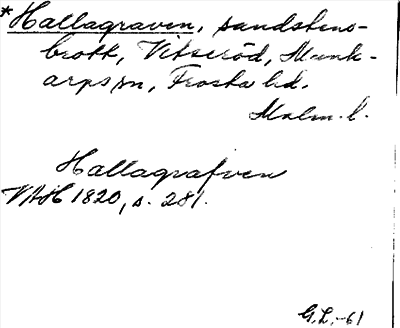 *Hallagraven, sandstens-
brott, Vitseröd, Munk-
arps sn, Frosta hd.
Malm. l.
Hallagrafven
VAH 1820, s. 281.
G.L. -61